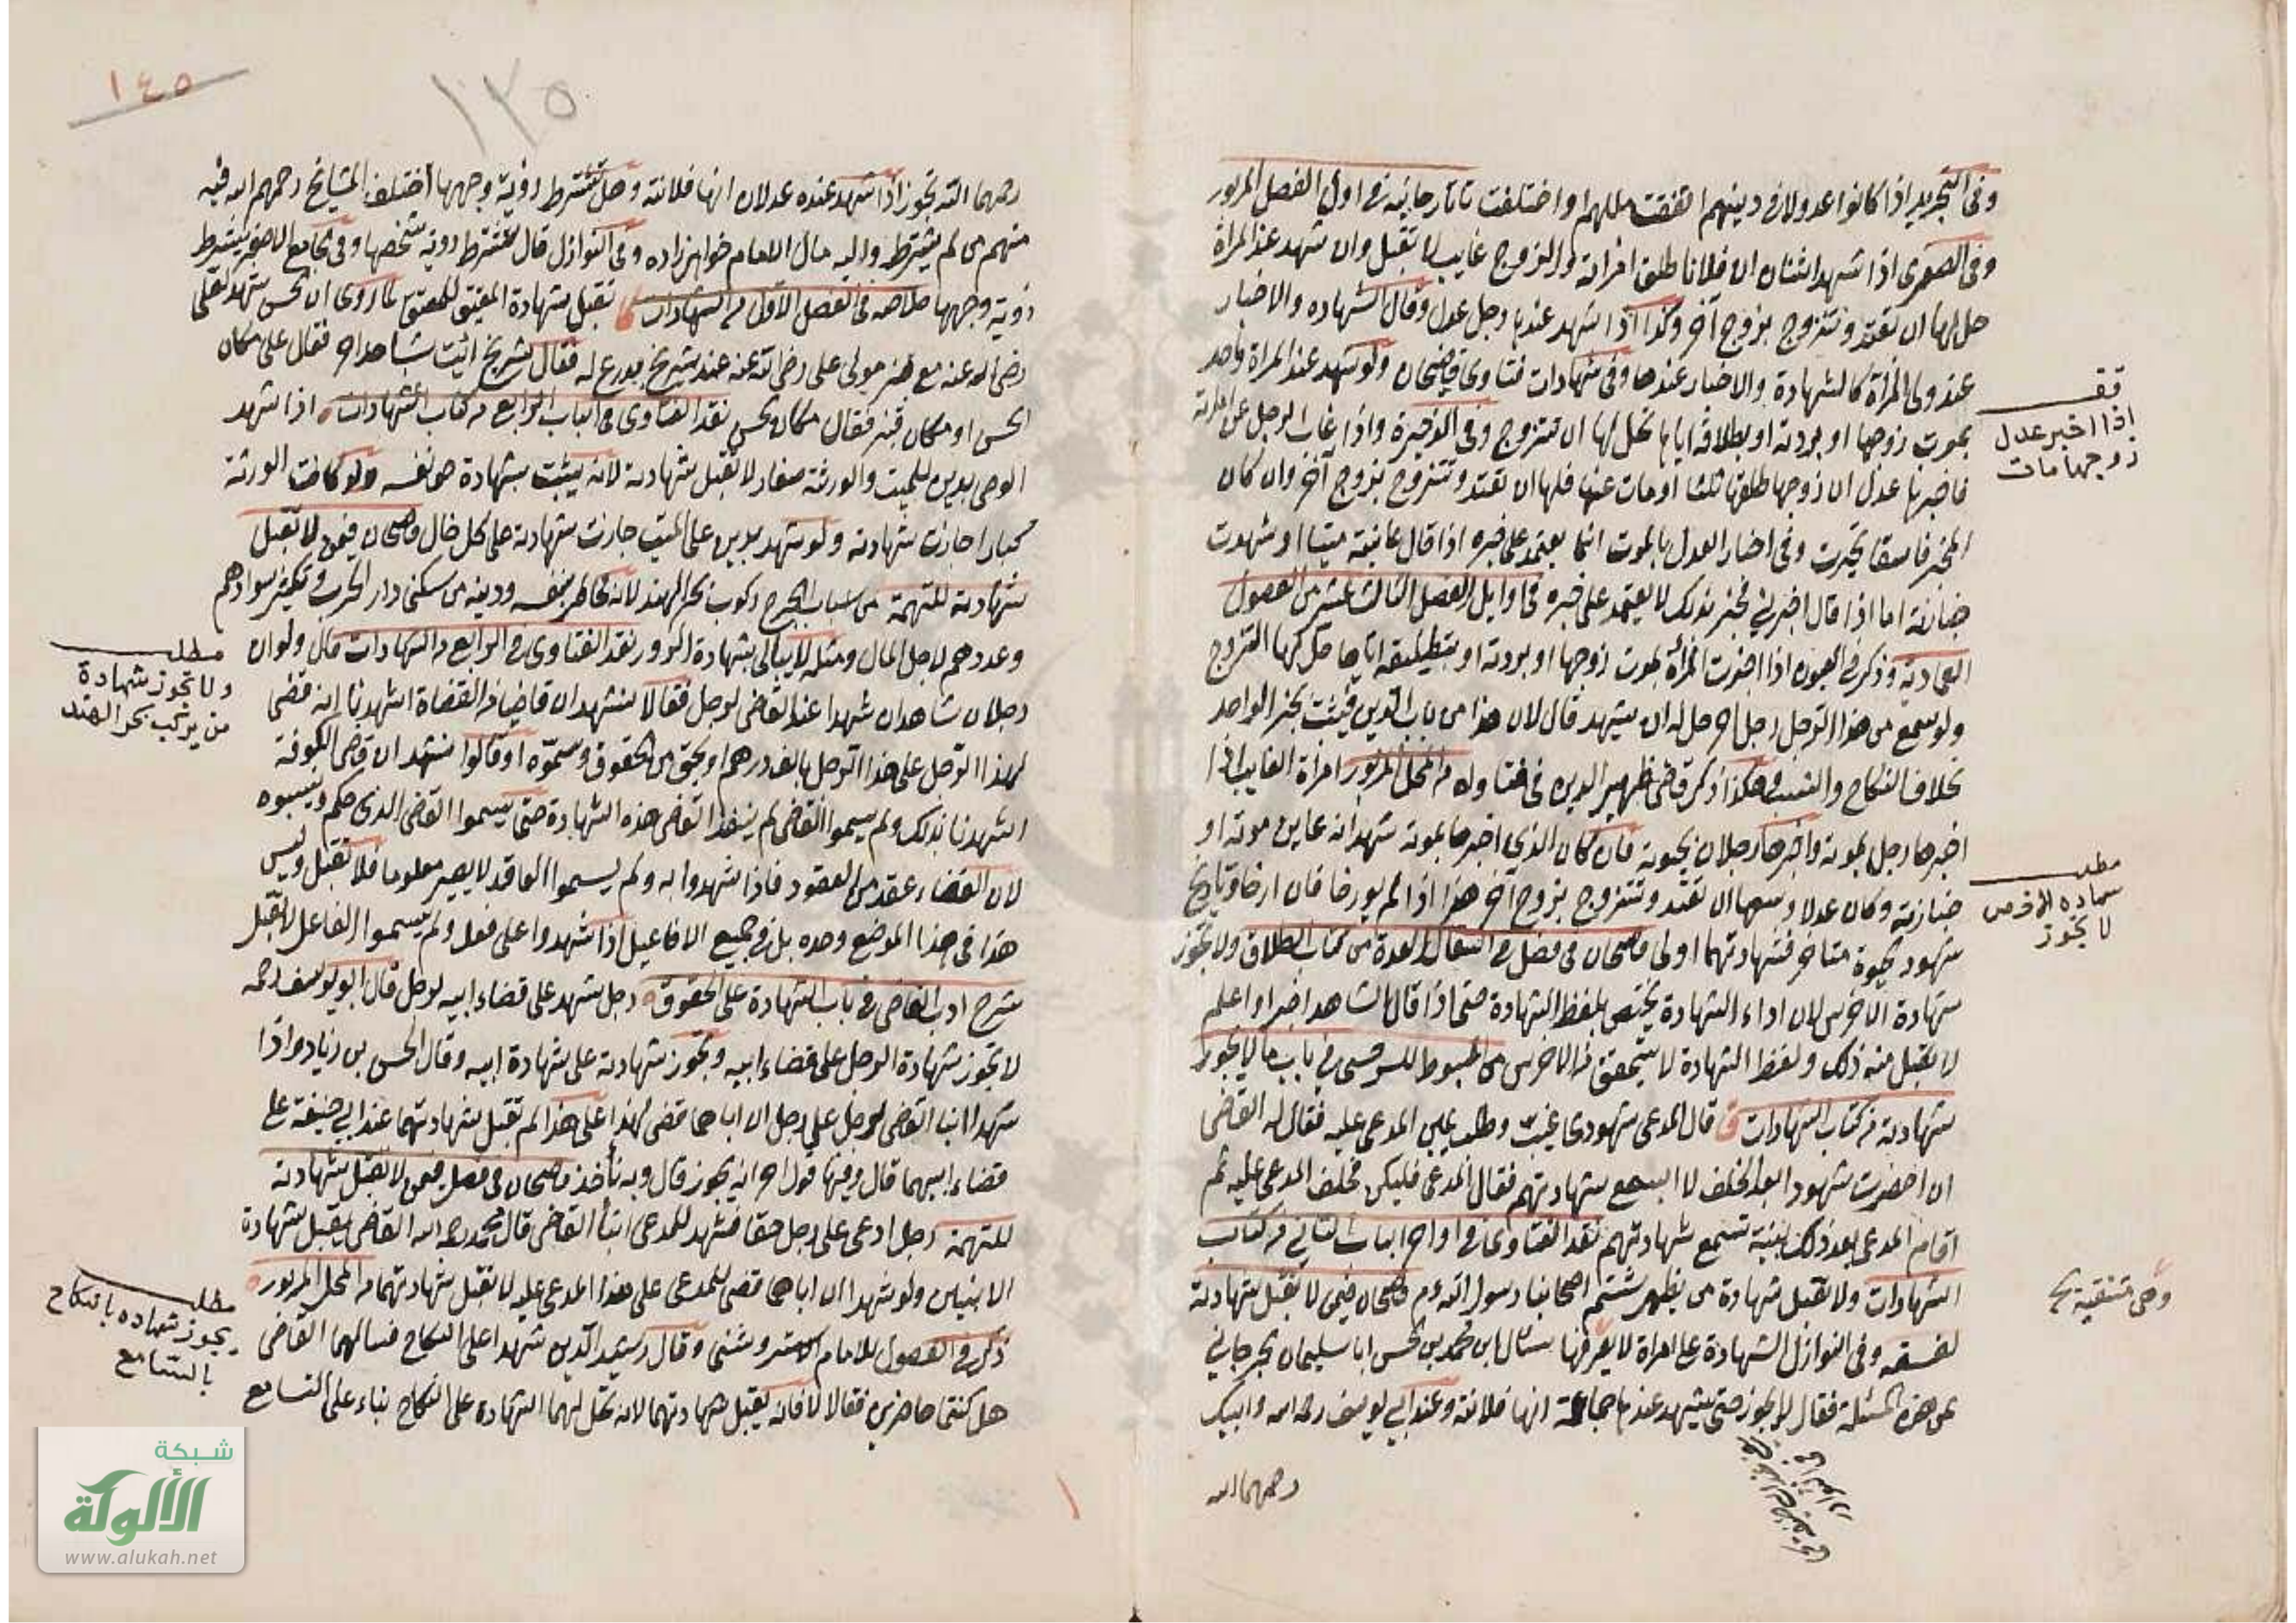 وفى التجريد اذا كانوا عدولا فى دينهم اتفقت مللهم او اختلفت تاتارخانيه فى اول الفصل المزبور
وفى الصغرى اذا شهد اثنان ان فلانا طلق امراته والزوج غايب لا تقبل وان شهد عند المراة
حل لها ان تعتد وتتزوج بزوج آخر وكذا اذا شهد عندها رجل عدل وقال الشهاده والاخبار
عند ولى المراة كالشهادة والاخبار عندها وفى شهادات فتاوى قاضيخان ولو شهد عند المراة واحد
بموت زوجها او بردته او بطلاقه اياها تحل لها ان تتزوج وفى الذخيرة واذا غاب الرجل عن امراته
فاخبرها عدل ان زوجها طلقها ثلثا او مات عنها فلها ان تعتد وتتزوج بزوج آخر وان كان
المخبر فاسقا تحرت وفى اخبار العدل بالموت انما يعتمد على خبره اذا قال عاينته ميتا او شهدت
جنازته اما اذا قال اخبرنى مخبر بذلك لا يعتمد على خبره فى اوايل الفصل الثالث عشر من الفصول
العمادية وذكر فى العيون اذا اخبرت المراة بموت زوجها او بردته او بتطليقه اياها حل لها التزوج
ولو سمع من هذا الرجل رجل آخر حل له ان يشهد قال لان هذا من باب الدين فيثبت بخبر الواحد
بخلاف النكاح والنسب هكذا ذكر قاضى ظهير الدين فى فتاواه من المحل المزبور امراة الغايب اذا
اخبرها رجل بموته واخبرها رجلان بحيوته فان كان الذي اخبرها بموته شهد انه عاين موته او
جنازته وكان عدلا وسعها ان تعتد وتتزوج بزوج آخر هذا اذا لم يورخا فان ارخا وتاريخ
شهود الحيوة متاخر فشهادتهما اولى قاضيخان فى فصل فى انتقال العدة من كتاب الطلاق ولا تجوز
شهادة الاخرس لان اداء الشهادة يختص بلفظ الشهادة حتى اذا قال الشاهد اخبر او اعلم
لا يقبل منه ذلك ولفظ الشهادة لا يتحقق من الاخرس من المبسوط للسرخسى فى باب ما لا يجوز
شهادته من كتاب الشهادات قال المدعى شهودى غيب وطلب يمين المدعى عليه فقال له القاضى
ان احضرت شهود ابعد الحلف لا اسمع شهادتهم فقال المدعى فليكن فحلف المدعى عليه ثم
اقام المدعى بعد ذلك بينة تسمع شهادتهم نقد الفتاوى فى اواخر الباب الثانى من كتاب
الشهادات ولا تقبل شهادة من يظهر شتم اصحابنا رسول الله عم قاضيخان فيمن لا تقبل شهادته
لفسقه وفى النوازل الشهادة على امراة لا يعرفها سئال ابن محمد بن الحسن ابا سليمان الجرجانى
عن هذه المسئلة فقال لا يجوز حتى يشهد عنده جماعة انها فلانة وعند ابى يوسف رحمه الله وابيك
رحمهما الله
قف
اذا اخبر عدل
زوجها مات
مطلب
شهاده الاخرس
لا يجوز
١٤٥
١٣٥
رحمهما الله تجوز اذا شهد عنده عدلان انها فلانة وهل تشترط رؤية وجهها اختلف المشايخ رحمهم الله فيه
منهم من لم يشترط واليه مال الامام خواهرزاده وفى النوازل قال تشترط روية شخصها وفى الجامع الاصغر يشترط
روية وجهها خلاصه فى الفصل الاول من الشهادات تقبل شهادة المعتق للمعتق لما روى ان الحسن شهد لعلى
رضى الله عنه مع قنبر مولى على رضى الله عنه عند شريح بدرع له فقال شريح ائت بشاهد آخر فقال على مكان
الحسن او مكان قنبر فقال مكان الحسن نقد الفتاوى فى الباب الرابع من كتاب الشهادات اذا شهد
الوصى بدين للميت والورثة صغار لا تقبل شهادته لانه يثبت بشهادة حق نفسه ولو كانت الورثة
كبارا جازت شهادته ولو شهد بدين على الميت جازت شهادته على كل حال قاضيخان فيمن لا تقبل
شهادته للتهمة من اسباب الجرح ركوب بحر الهند لانه خاطر بنفسه ودينه من سكنى دار الحرب وتكثير سوادهم
وعددهم لاجل المال ومثله لا يبالى بشهادة الزور نقد الفتاوى فى الرابع من الشهادات قال ولو ان
رجلان شاهدان شهدا عند القاضى لرجل فقالا نشهد ان قاضيا من القضاة اشهدنا انه قضى
لهذا الرجل على هذا الرجل بالف درهم او بحق من الحقوق وسموه او قالوا نشهد ان قاضى الكوفة
اشهدنا بذلك ولم يسموا القاضى لم ينفذ القاضى هذه الشهادة حتى يسموا القاضى الذى حكم وينسبوه
لان القضاء عقد من العقود فاذا شهدوا به ولم يسموا العاقد لا يصير معلوما فلا تقبل وليس
هذا فى هذا الموضع وحده بل فى جميع الافاعيل اذا شهدوا على فعل ولم يسموا الفاعل لا تقبل
شرح ادب القاضى فى باب الشهادة على الحقوق رجل شهد على قضاء ابيه لرجل قال ابو يوسف رحمه
لا تجوز شهادة الرجل على قضاء ابيه وتجوز شهادته على شهادة ابيه وقال الحسن بن زياد واذا
شهد ابنا القاضى لرجل على رجل ان اباهما قضى لهذا على هذا لم تقبل شهادتهما عند ابي حنيفة على
قضاء ابيهما قال وفيها قول آخر انه يجوز قال وبه نأخذ قاضيخان فى فصل فيمن لا تقبل شهادته
للتهمة رجل ادعى على رجل حقا فشهد للمدعى ابنا القاضى قال محمد رحمه الله القاضى يقبل شهادة
الابنين ولو شهدا ان اباهما قضى للمدعى على هذا المدعى عليه لا تقبل شهادتهما من المحل المزبور
ذكر فى الفصول للامام الاستروشنى وقال رشيد الدين شهدا على النكاح فسالهما القاضى
هل كنتما حاضرين فقالا لا فانه يقبل شهادتهما لانه تحل لهما الشهاده على النكاح بناء على التسامع
مطلب
ولا تجوز شهادة
من يركب بحر الهند
مطلب
يجوز شهاده بالنكاح
بالتسامع
شبكة
الألوكة
www.alukah.net